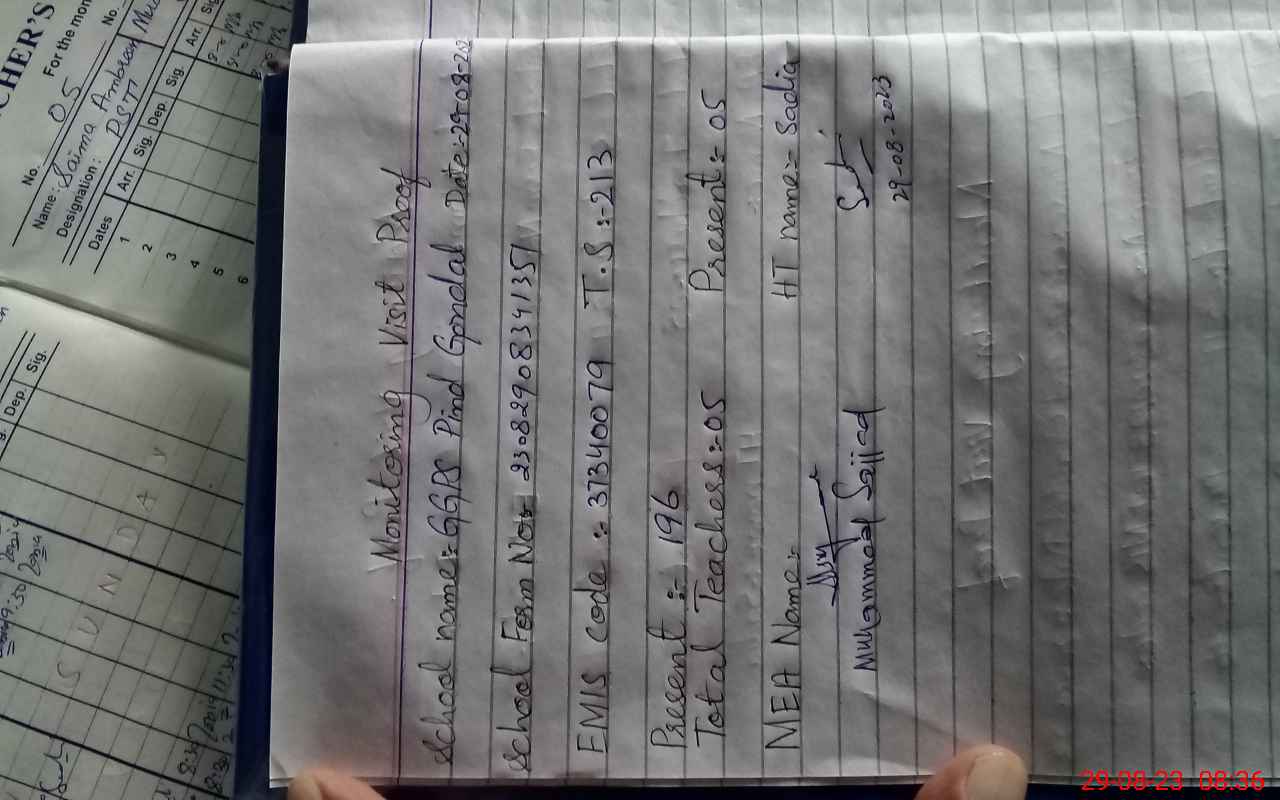 Monitoring Visit Proof
School name:- GGPS Pind Gondal Date:-29-08-202
School Form No:- 23082908341351
EMIS Code :- 37340079 T.S :-213
Present :- 196
Total Teachers:-05 Present:- 05
MEA Name:- HT name:- Sadia
Muhammad Sajjad
29-08-2023
CHER'S
For the mon
No. 05 No.
Name: Saima Ambreen
Designation: PSTT
Dates Arr. Sig. Dep. Sig. Arr. Sig
1
2
3
4
5
6
Dep. Sig.
SUNDAY
29-08-23 08:36